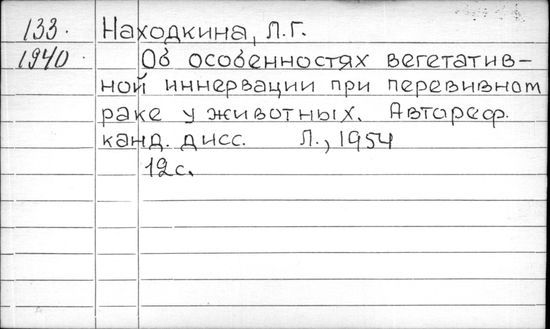 133. Находкина, Л.Г.
1940. Об особенностях вегетатив-
ной иннервации при перевивном
раке у животных. Автореф.
канд. дисс. Л., 1954
12с.